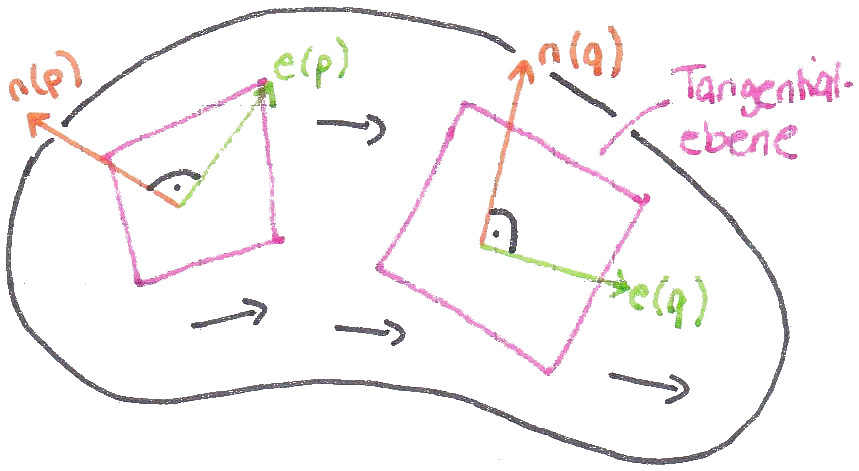 n(p)
e(p)
n(q)
Tangential-
ebene
e(q)